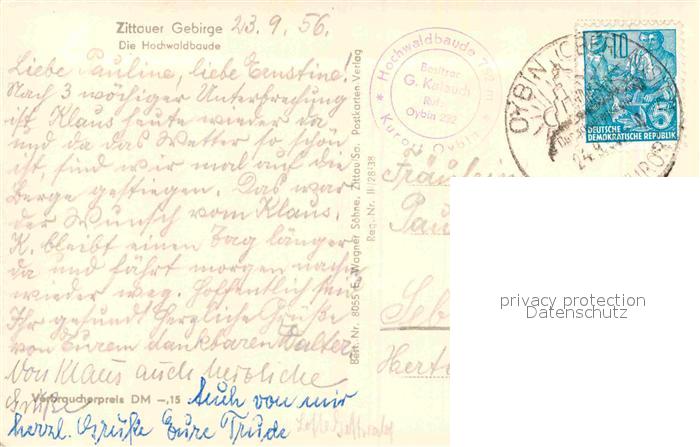 Zittauer Gebirge 23.9.56.
Die Hochwaldbaude
Liebe Pauline, liebe Ernstine!
Nach 3 wöchiger Unterbrechung
ist Klaus heute wieder da
und da das Wetter so schön
ist, sind wir mal auf die
Berge gestiegen. Das war
der Wunsch vom Klaus.
K. bleibt einen Tag länger
da und fährt morgen nachm
wieder weg. Hoffentlich seid
Ihr gesund! Herzliche Grüße
von Eurem dankbaren Walter.
Von Klaus auch herzliche
Grüße
Verbraucherpreis DM –,15
Auch von mir
herzl. Grüße Eure Trude
Best. Nr. 8055 E. Wagner Söhne, Zittau/Sa. Postkarten-Verlag
Reg. Nr. III/28/38
* Hochwaldbaude 749 m *
Kurort Oybin
Besitzer
G.
Ruf
Oybin 292
OYBIN
24.9
10
5
DEUTSCHE
DEMOKRATISCHE REPUBLIK
Fräulein
Pau
Seb
Hert
privacy protection
Datenschutz